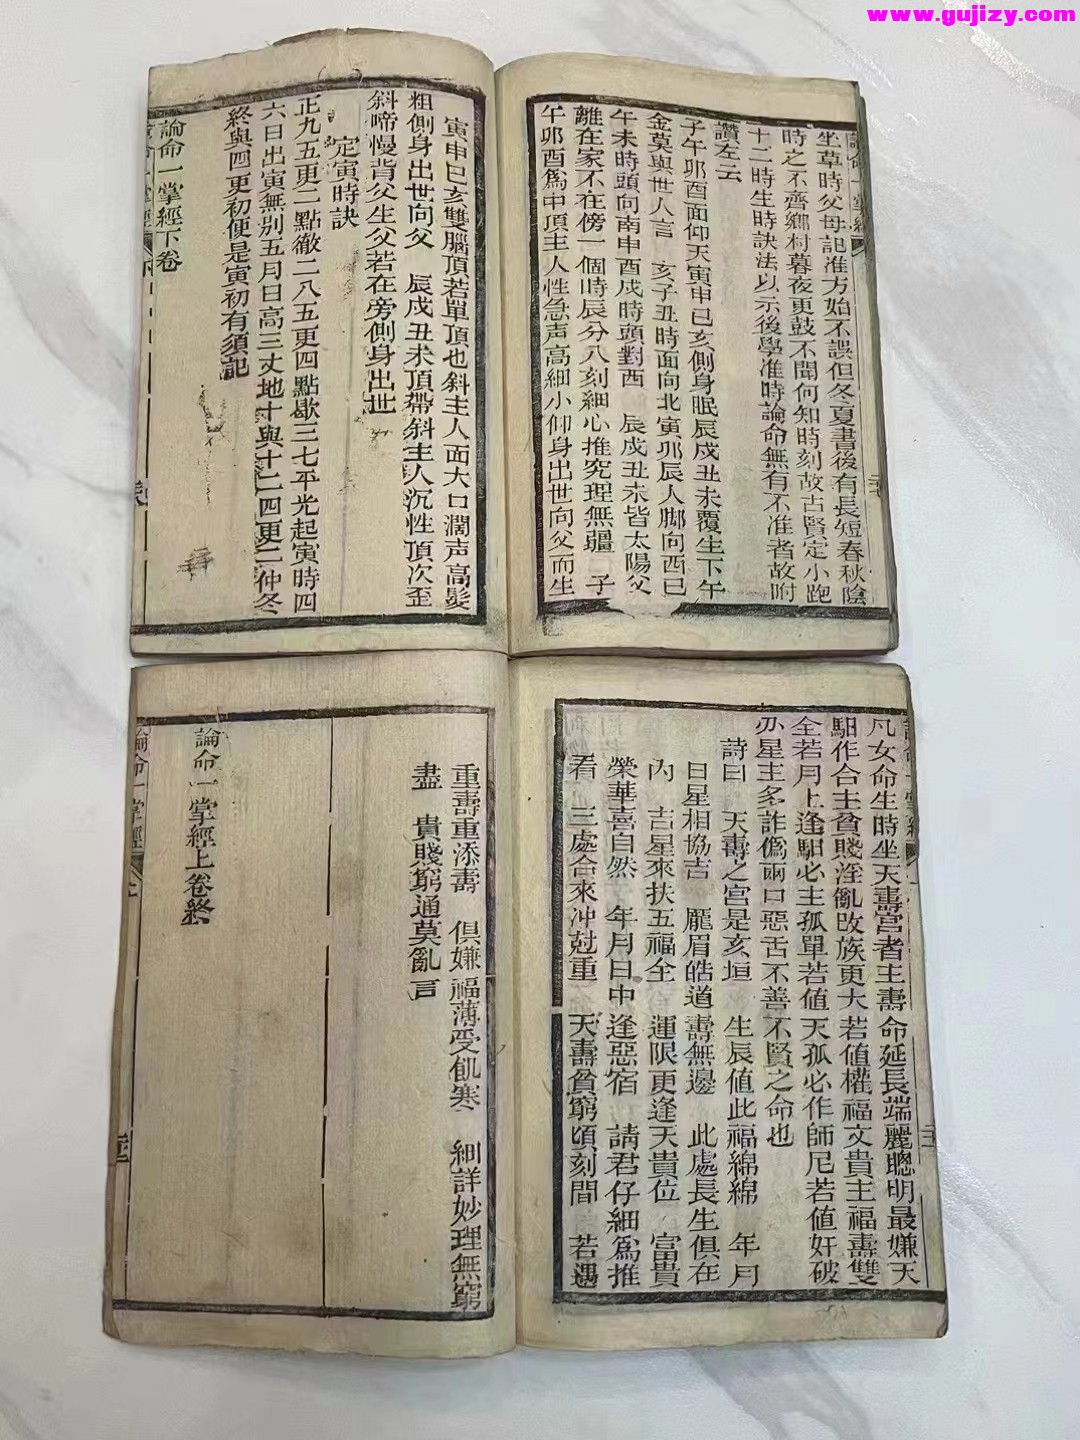 www.gujizy.com
坐草時父母記准方始不誤但冬夏書後有長短春秋陰
時之不齊鄉村暮夜更鼓不聞何知時刻故古賢定小跑
十二時生時訣法以示後學准時論命無有不准者故附
讚左云
子午卯酉面仰天寅申巳亥側身眠辰戍丑未覆生下午
金莫與世人言 亥子丑時面向北寅夘辰人脚向西巳
午未時頭向南申酉戍時頭對西 辰戍丑未皆太陽父
離在家不在傍一個時辰分八刻細心推究理無疆 子
午卯酉爲中頂主人性急声高細小仰身出世向父而生
寅申巳亥雙腦頂若單頂也斜主人面大口濶声高髮
粗側身出世向父 辰戍丑未頂帶斜主人沉性頂次歪
斜啼慢背父生父若在旁側身出世
定寅時訣
正九五更二點徹二八五更四點歇三七平光起寅時四
六日出寅無别五月日高三丈地十與十二四更二仲冬
終與四更初便是寅初有須記
論命一掌經下卷
凡女命生時坐天壽宮者主壽命延長端麗聰明最嫌天
馹作合主貧賤淫亂改族更大若値權福文貴主福壽雙
全若月上逢馹必主孤單若値天孤必作師尼若値奸破
刃星主多詐僞兩口惡舌不善不賢之命也
詩曰 天壽之宮是亥垣 生辰値此福綿綿 年月
日星相協吉 龎眉皓道壽無邊 此處長生俱在
內 吉星來扶五福全 運限更逢天貴位 富貴
榮華喜自然 年月日中逢惡宿 請君仔細爲推
看 三處合來冲尅重 天壽貧窮頃刻間 若遇
重壽重添壽 俱嫌福薄受飢寒 細詳妙理無窮
盡 貴賤窮通莫亂言
論命一掌經上卷終
論命一掌經